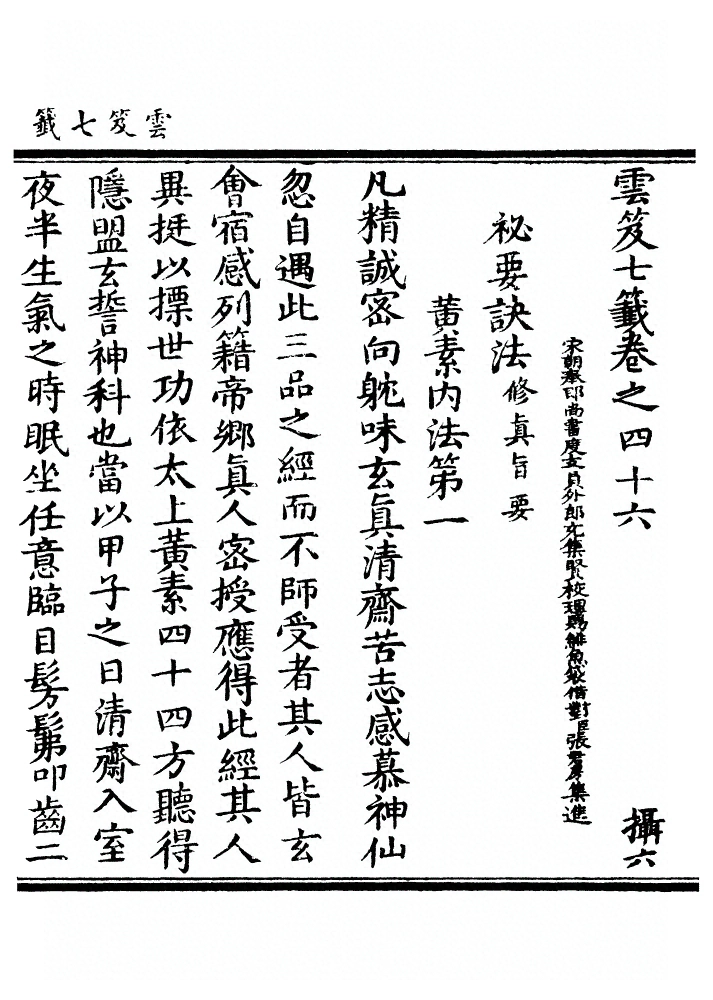 雲笈七籤
雲笈七籤卷之四十六 攝六
宋朝奉郎尚書度支員外郎充集賢校理賜緋魚袋借對臣張君房集進
祕要訣法修眞旨要
黃素內法第一
凡精誠密向躭味玄眞清齋苦志感慕神仙
忽自遇此三品之經而不師受者其人皆玄
會宿感列籍帝鄉眞人密授應得此經其人
異挺以摽世功依太上黃素四十四方聽得
隱盟玄誓神科也當以甲子之日清齋入室
夜半生氣之時眠坐任意臨目髣髴叩齒二